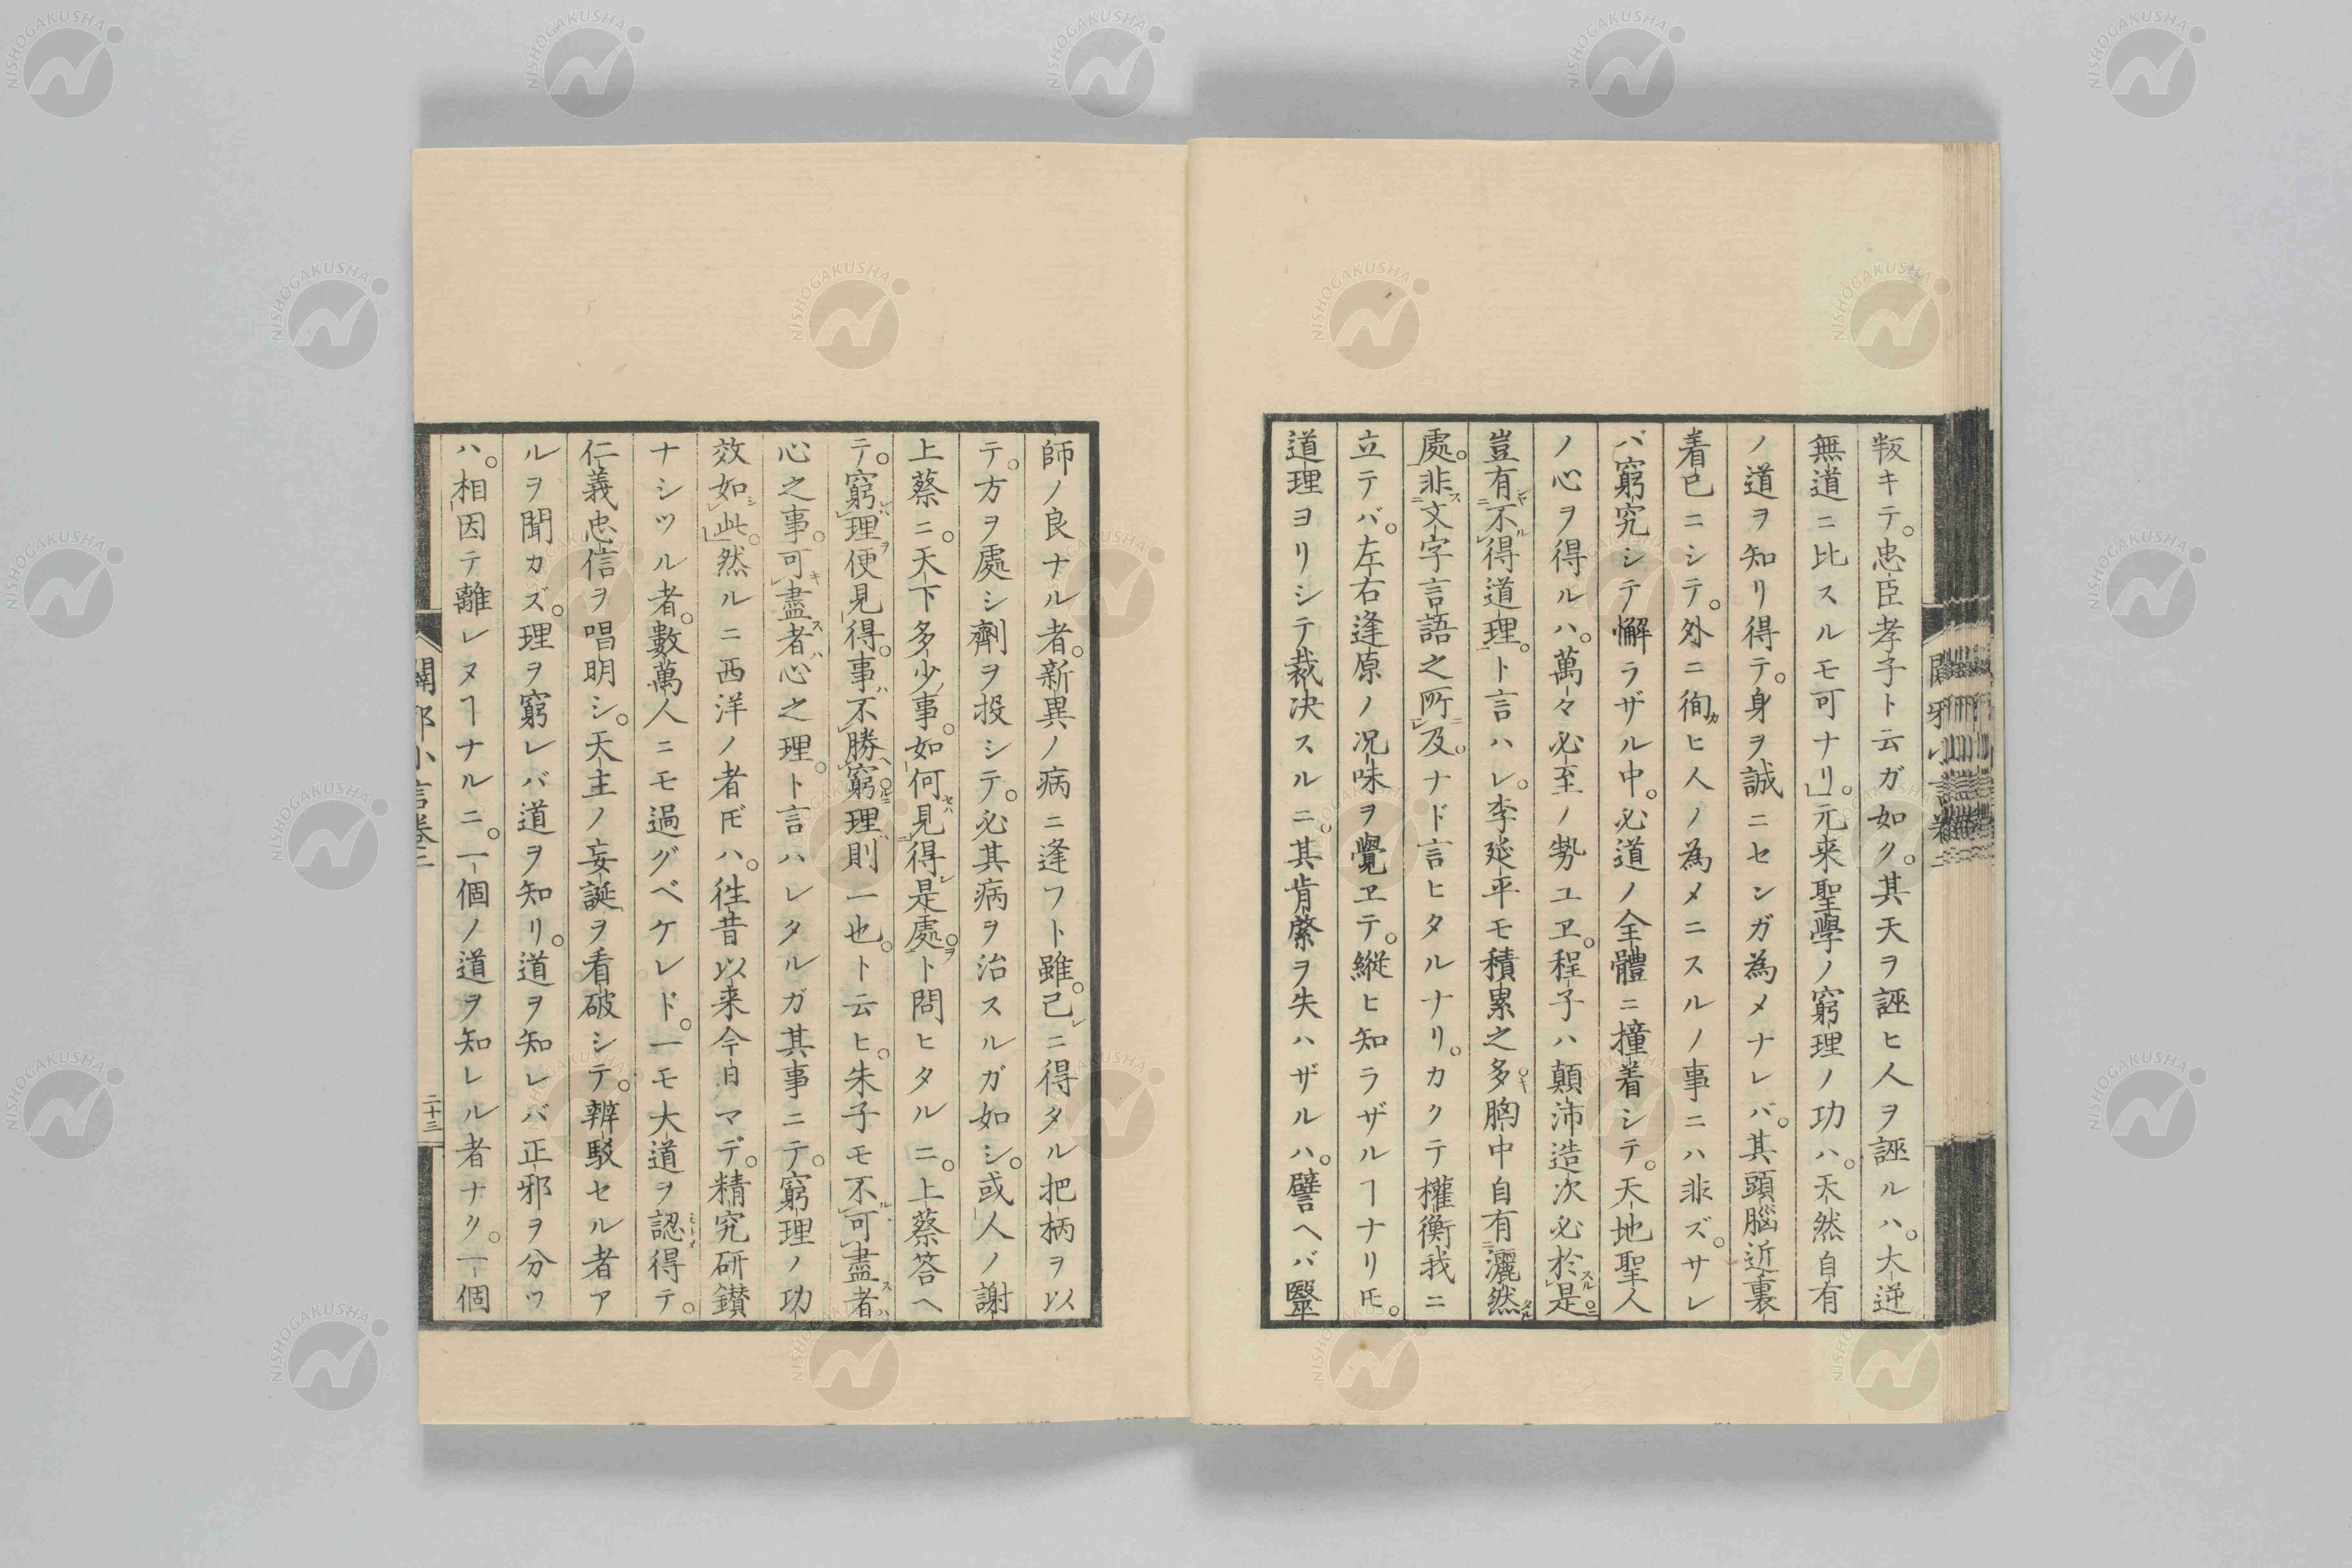 叛キテ。忠臣孝子ト云ガ如ク。其天ヲ誣ヒ人ヲ誣ルハ。大逆
無道ニ比スルモ可ナリ」。元来聖學ノ窮理ノ功ハ。天然自有
ノ道ヲ知リ得テ。身ヲ誠ニセンガ為メナレバ。其頭腦近裏
着已ニシテ。外ニ徇ヒ人ノ為メニスルノ事ニハ非ズ。サレ
バ窮究シテ懈ラザル中。必道ノ全體ニ撞着シテ。天地聖人
ノ心ヲ得ルハ。萬々必至ノ勢ユヱ。程子ハ顛沛造次必於是
豈有不得道理。ト言ハレ。李延平モ積累之多胸中自有灑然
處。非文字言語之所及。ナド言ヒタルナリ。カクテ權衡我ニ
立テバ。左右逢原ノ況味ヲ覺ヱテ。縱ヒ知ラザルヿナリ𪜈。
道理ヨリシテ裁决スルニ。其肯綮ヲ失ハザルハ。譬ヘバ毉
師ノ良ナル者。新異ノ病ニ逢フト雖。己ニ得タル把柄ヲ以
テ。方ヲ處シ劑ヲ投シテ。必其病ヲ治スルガ如シ。或人ノ謝
上蔡ニ。天下多少事。如何見得是處。ト問ヒタルニ。上蔡答ヘ
テ。窮理便見得。事不勝窮理則一也。ト云ヒ。朱子モ不可盡者
心之事。可盡者心之理。ト言ハレタルガ其事ニテ。窮理ノ功
效如此。然ルニ西洋ノ者𪜈ハ。徃昔以来今日マデ。精究研鑚
ナシツル者。數萬人ニモ過グベケレド。一モ大道ヲ認得テ。
仁義忠信ヲ唱明シ。天主ノ妄誕ヲ看破シテ。辨駁セル者ア
ルヲ聞カズ。理ヲ窮レバ道ヲ知リ。道ヲ知レバ正邪ヲ分ツ
ハ。相因テ離レヌヿナルニ。一個ノ道ヲ知レル者ナク。一個
闢邪小言卷二
二十三
NISHOGAKUSHA